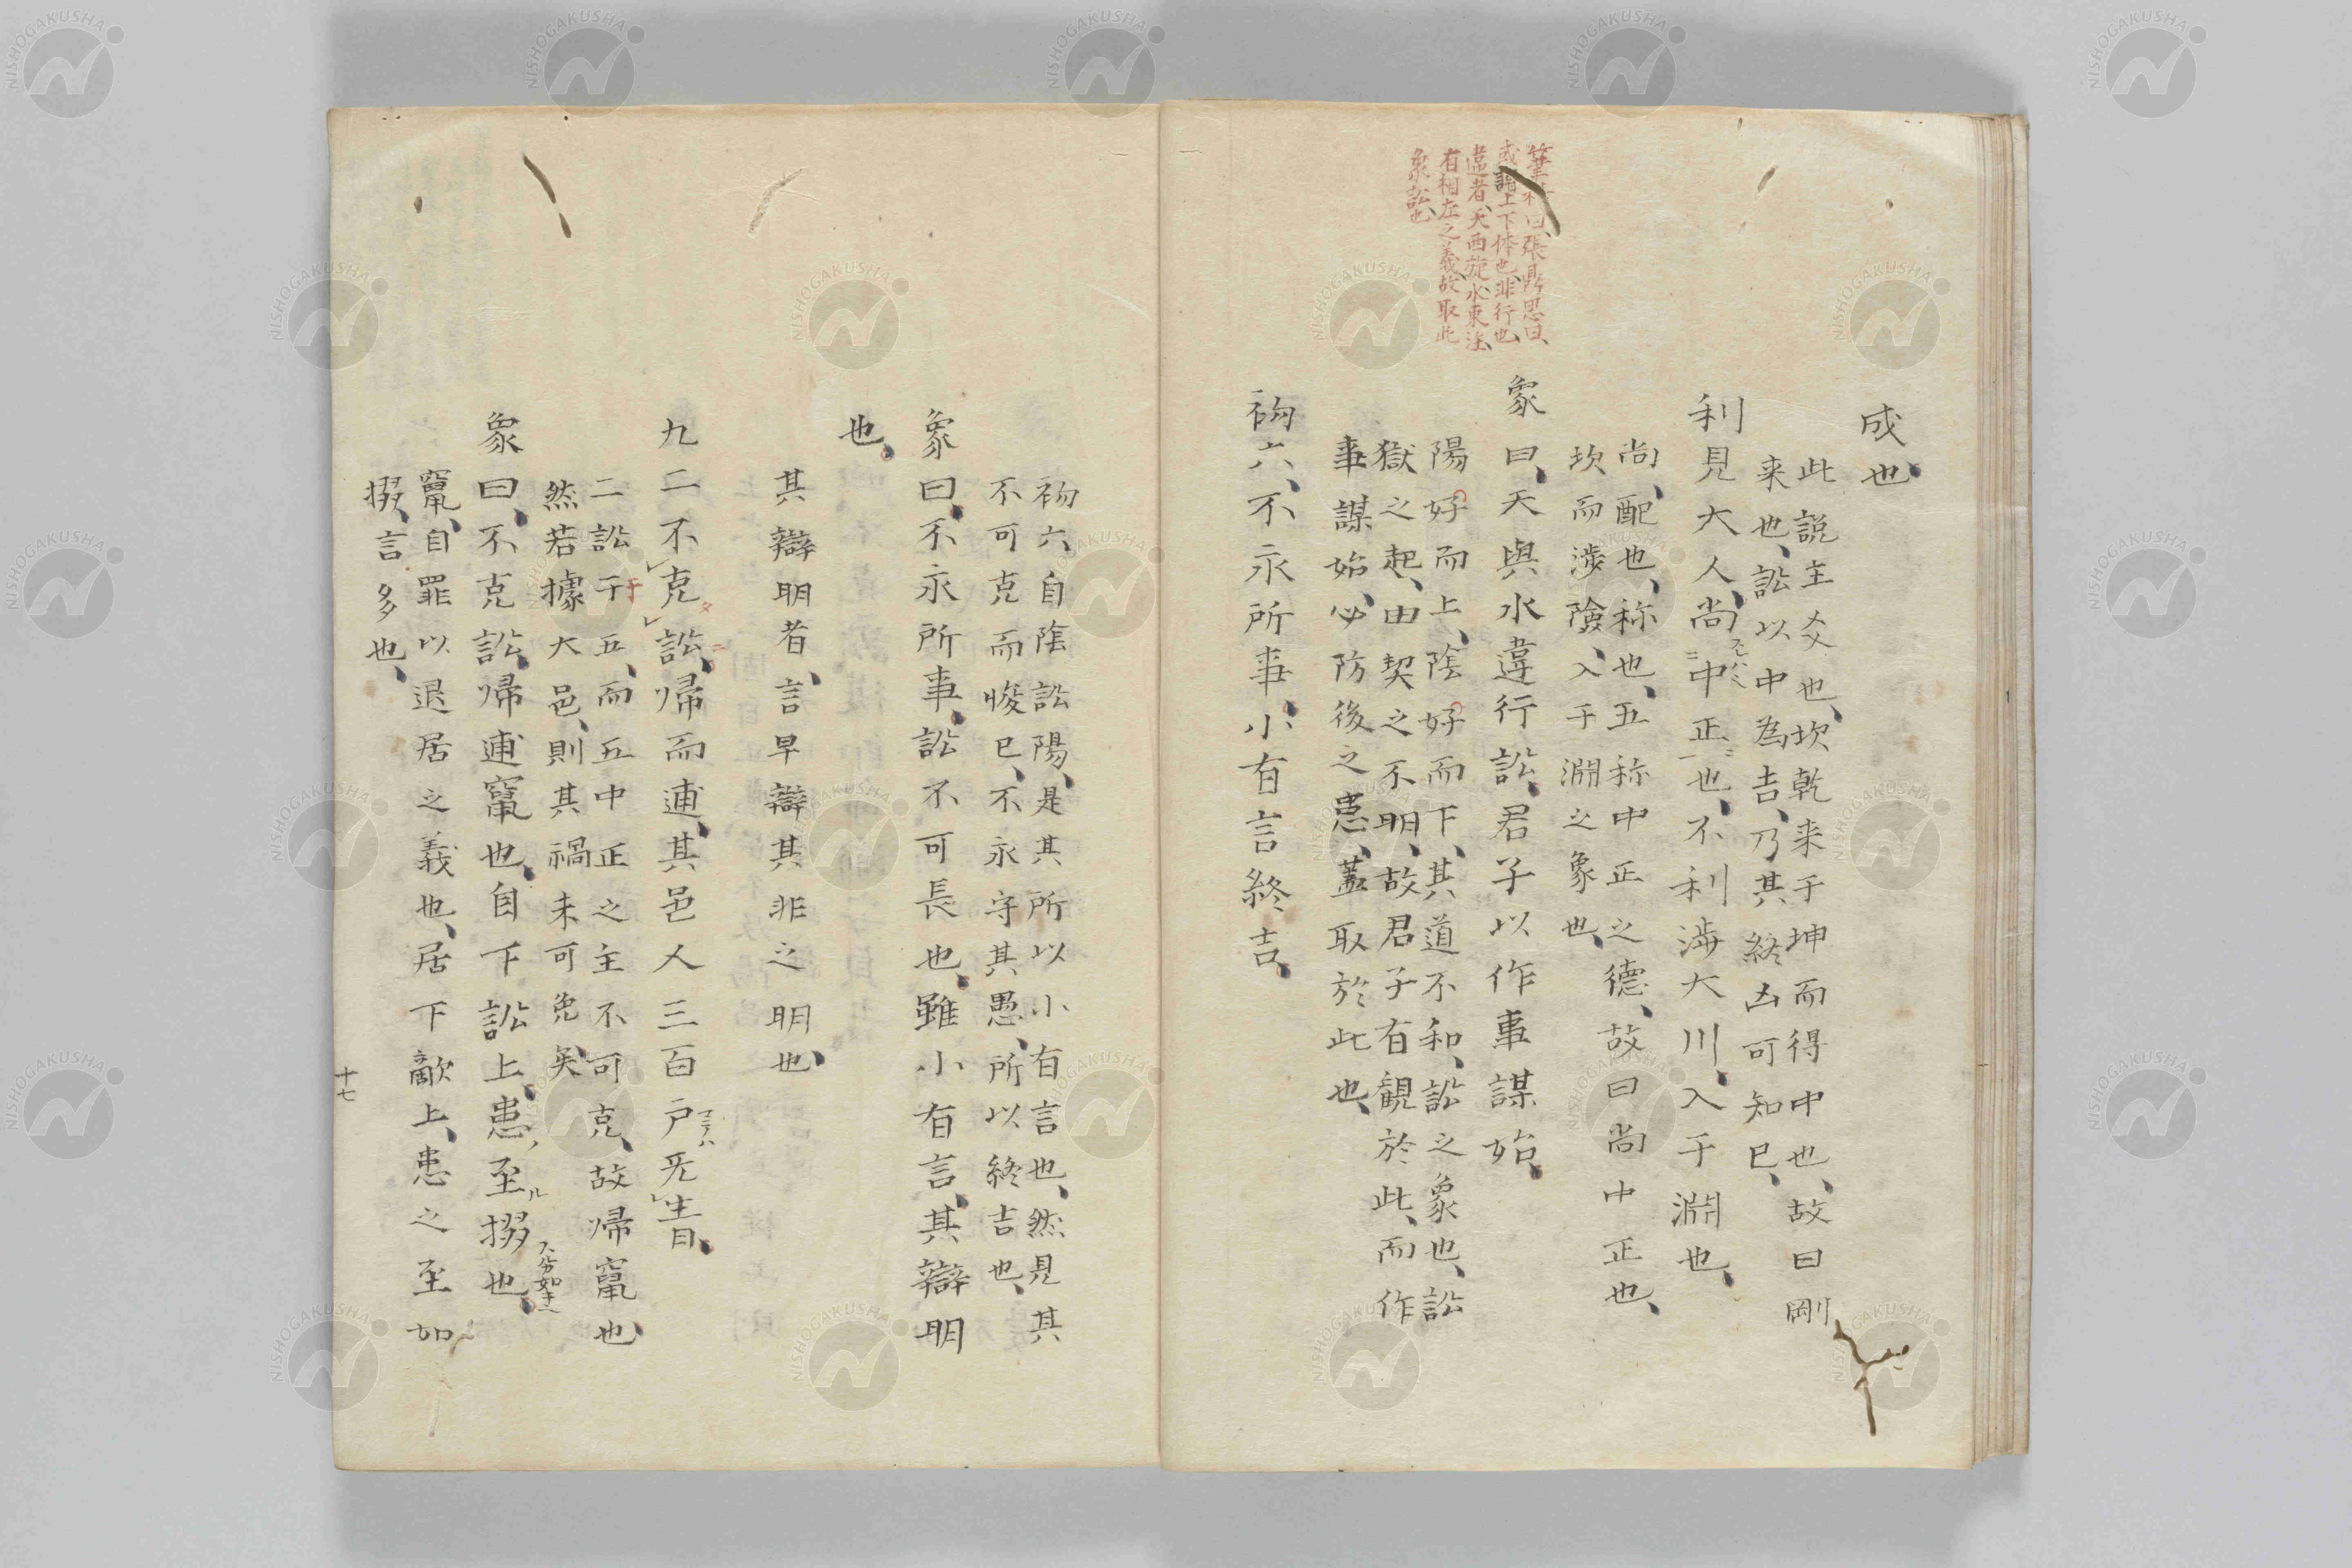 成也、
此説主爻也、坎乾来于坤而得中也、故曰剛
来也、訟以中為吉、乃其終凶可知已、
利見大人、尚中正也、不利渉大川、入于淵也、
尚、配也、称也、五称中正之德、故曰尚中正也、
坎而渉險、入于淵之象也、
象曰、天與水違行訟、君子以作事謀始、
陽好而上、陰好而下、其道不和、訟之象也、訟
獄之起、由契之不明、故君子有観於此、而作
事謀始、必防後之患、蓋取於此也、
曰、張鼎思曰、
上下体也、非行也、
違者、天西旋、水東注、
有相左之義、故取此
象訟也
初六、不永所事、小有言終吉、
初六自陰訟陽、是其所以小有言也、然見其
不可克而悛已、不永守其愚、所以終吉也、
象曰、不永所事、訟不可長也、雖小有言、其辯明
也、
其辯明者、言早辯其非之明也、
九二不克訟、帰而逋、其邑人三百戸旡眚、
二訟于五、而五中正之主不可克、故帰竄也
然若據大邑、則其禍未可免矣、
象曰、不克訟、帰逋竄也、自下訟上、患至掇也、
竄、自罪以退居之義也、居下敵上、患之至如
掇、言多也、
十七
NISHOGAKUSHA